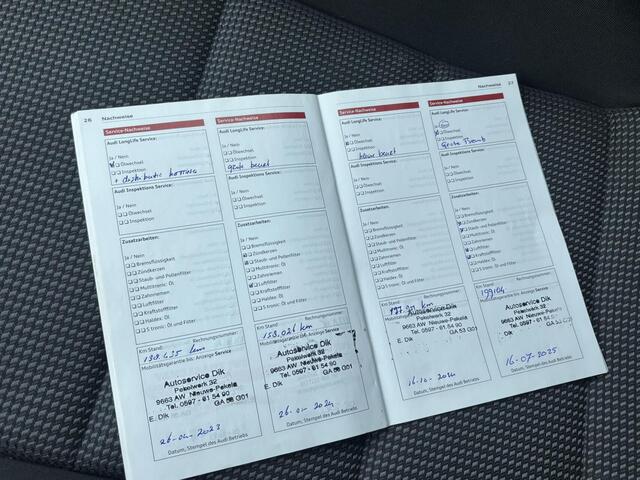 26 Nachweise
Service-Nachweise
Audi LongLife Service:
Ja / Nein
Ölwechsel
Inspektion
+ distributie
Audi Inspektions Service:
Ja / Nein
Ölwechsel
Inspektion
Zusatzarbeiten:
Ja / Nein
Bremsflüssigkeit
Zündkerzen
Staub- und Pollenfilter
Multitronic: Öl
Zahnriemen
Luftfilter
Kraftstofffilter
Haldex: Öl
S tronic: Öl und Filter
Km Stand: Rechnungsnummer:
Mobilitätsgarantie bis: Anzeige Service
Autoservice Dik
Pekelwerk 32
9663 AW Nieuwe-Pekela
Tel. 0597 - 61 54 90
E. Dik GA G01
26-04-2023
Datum, Stempel des Audi Betriebs
Service-Nachweise
Audi LongLife Service:
Ja / Nein
Ölwechsel
Inspektion
grote beurt
Audi Inspektions Service:
Ja / Nein
Ölwechsel
Inspektion
Zusatzarbeiten:
Ja / Nein
Bremsflüssigkeit
Zündkerzen
Staub- und Pollenfilter
Multitronic: Öl
Zahnriemen
Luftfilter
Kraftstofffilter
Haldex: Öl
S tronic: Öl und Filter
Km Stand: Rechnungsnummer:
158.026 km
Mobilitätsgarantie bis: Anzeige Service
Autoservice Dik
Pekelwerk 32
9663 AW Nieuwe-Pekela
Tel. 0597 - 61 54 90
E. Dik GA G01
26-01-2024
Datum, Stempel des Audi Betriebs
Nachweise 27
Service-Nachweise
Audi LongLife Service:
Ja / Nein
Ölwechsel
Inspektion
kleine beurt
Audi Inspektions Service:
Ja / Nein
Ölwechsel
Inspektion
Zusatzarbeiten:
Ja / Nein
Bremsflüssigkeit
Zündkerzen
Staub- und Pollenfilter
Multitronic: Öl
Zahnriemen
Luftfilter
Kraftstofffilter
Haldex: Öl
S tronic: Öl und Filter
Km Stand: Rechnungsnummer:
Mobilitätsgarantie bis: Anzeige Service
Autoservice Dik
Pekelwerk 32
9663 AW Nieuwe-Pekela
Tel. 0597 - 61 54 90
E. Dik GA G01
16-10-2024
Datum, Stempel des Audi Betriebs
Service-Nachweise
Audi LongLife Service:
Ja / Nein
Ölwechsel
Inspektion
Grote
Audi Inspektions Service:
Ja / Nein
Ölwechsel
Inspektion
Zusatzarbeiten:
Ja / Nein
Bremsflüssigkeit
Zündkerzen
Staub- und Pollenfilter
Multitronic: Öl
Zahnriemen
Luftfilter
Kraftstofffilter
Haldex: Öl
S tronic: Öl und Filter
Km Stand: Rechnungsnummer:
199104
Mobilitätsgarantie bis: Anzeige Service
Autoservice Dik
Pekelwerk 32
9663 AW Nieuwe-Pekela
Tel. 0597 - 61 54 90
E. Dik GA G01
16-07-2025
Datum, Stempel des Audi Betriebs